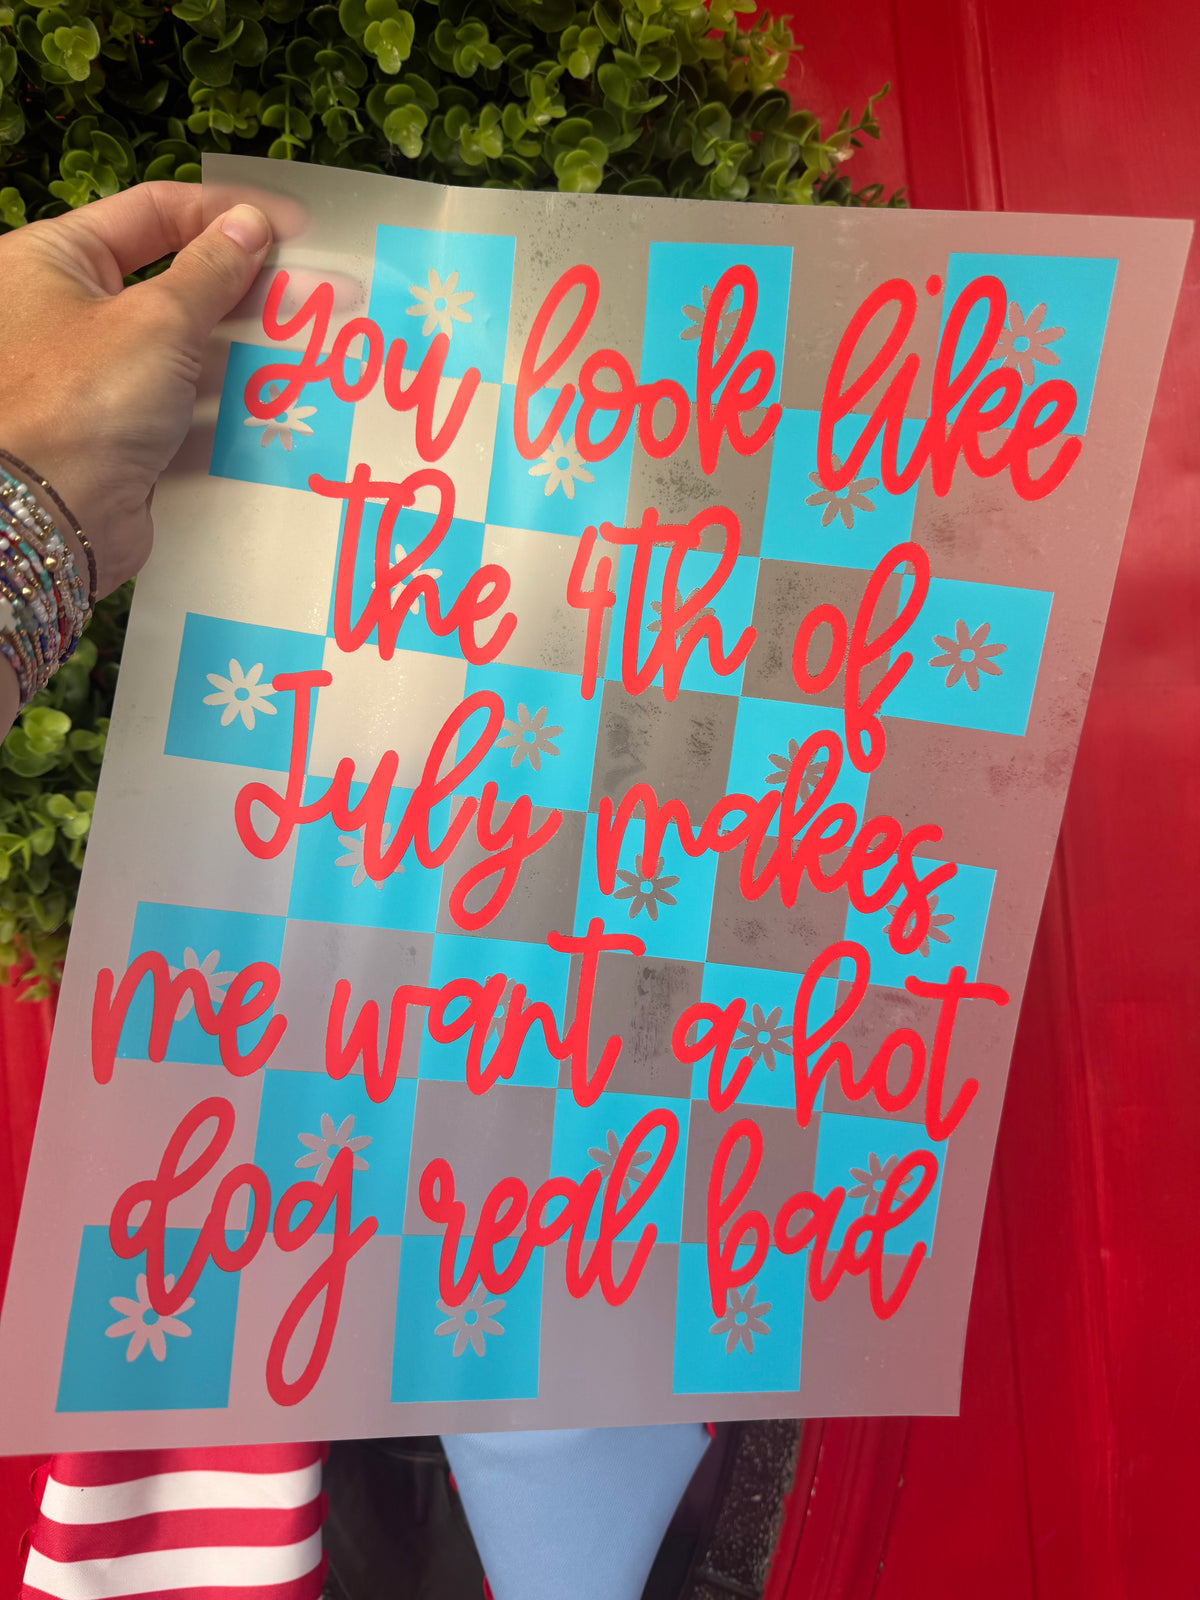 you look like
the 4th of
July makes
me want a hot
dog real bad